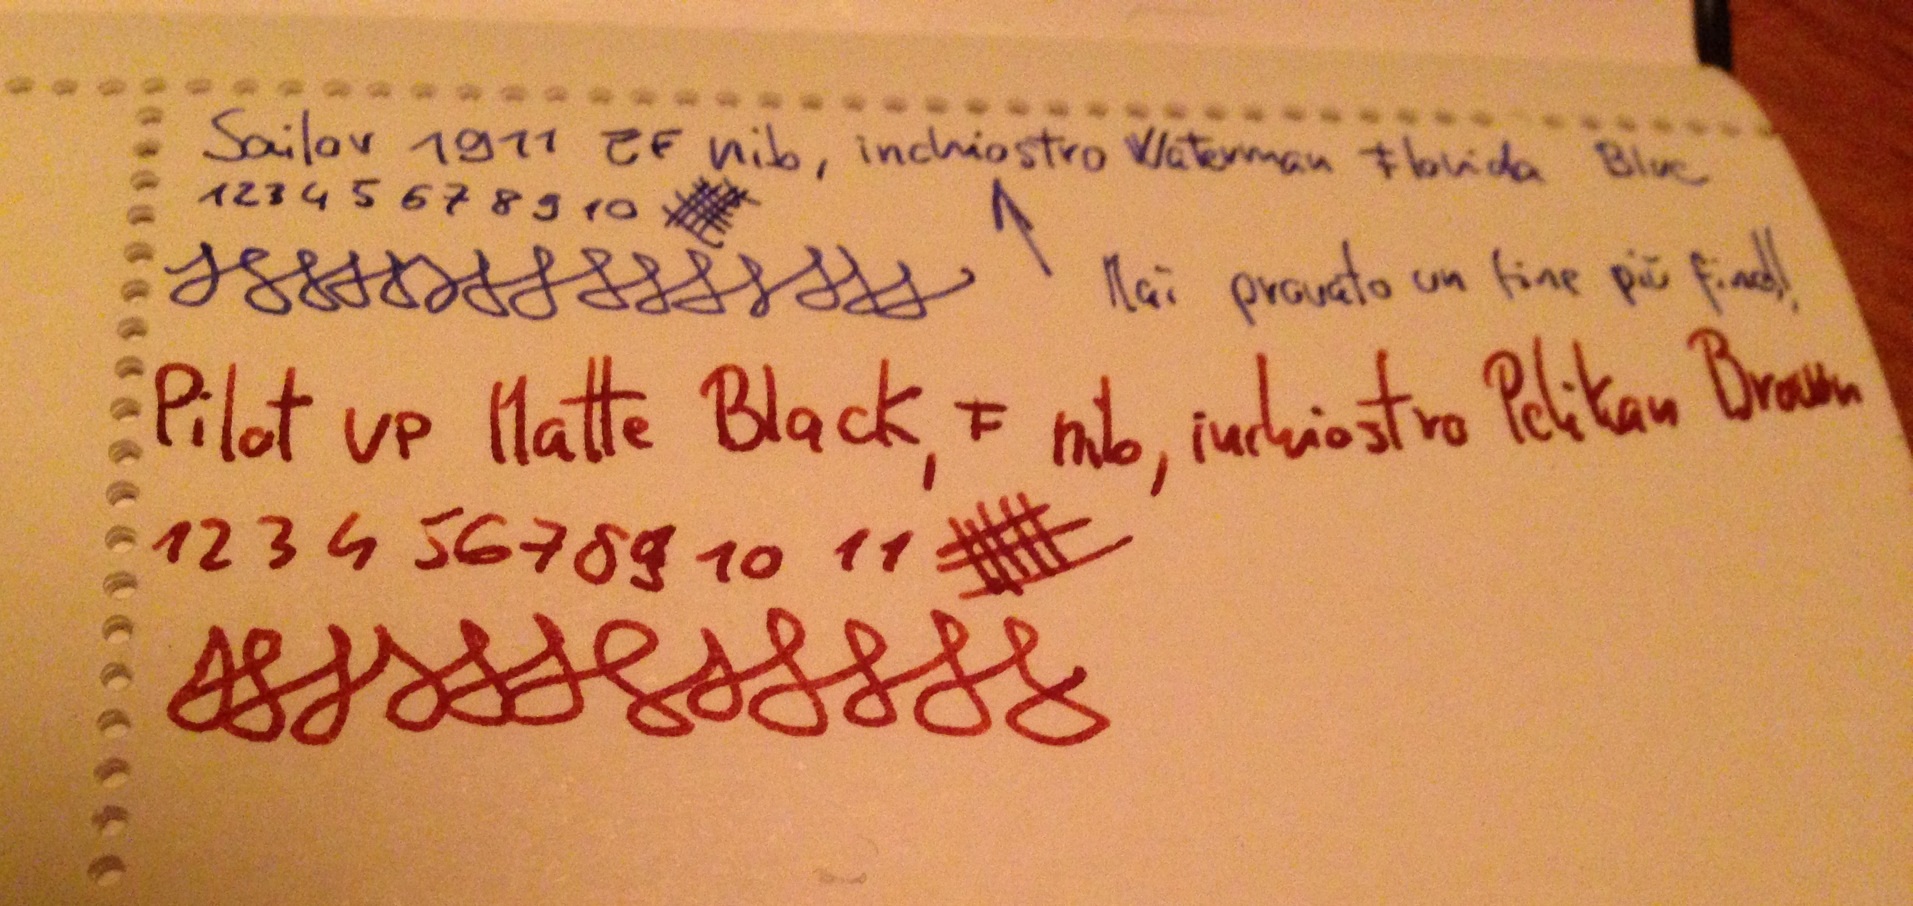 Sailor 1911 EF nib, inchiostro Waterman Florida Blue
1 2 3 4 5 6 7 8 9 10
Mai provato un fine più fine!!
Pilot VP Matte Black, F nib, inchiostro Pelikan Brown
1 2 3 4 5 6 7 8 9 10 11